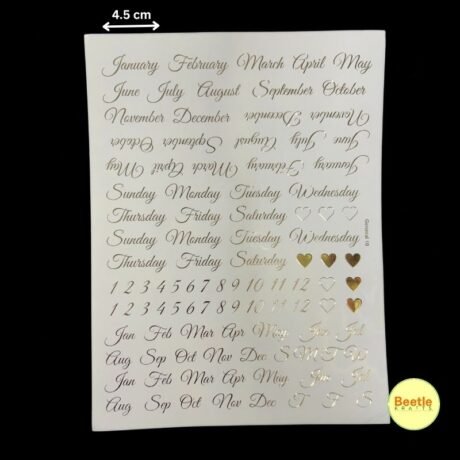 4.5 cm
January February March April May
June July August September October
November December November December
June July August September October
January February March April May
Sunday Monday Tuesday Wednesday
Thursday Friday Saturday
General 10
Sunday Monday Tuesday Wednesday
Thursday Friday Saturday
1 2 3 4 5 6 7 8 9 10 11 12
1 2 3 4 5 6 7 8 9 10 11 12
Jan Feb Mar Apr May Jun Jul
Aug Sep Oct Nov Dec S M T W
Jan Feb Mar Apr May Jun Jul
Aug Sep Oct Nov Dec T F S
Beetle
KRAFTS